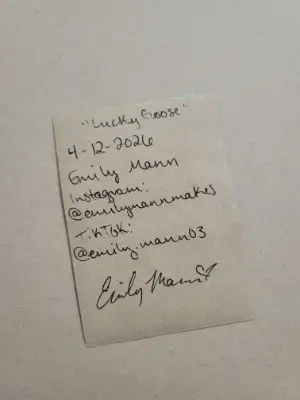 "Lucky Goose"
4-12-2026
Emily Mann
Instagram:
@emilymannmakes
TikTok:
@emily.mann03
Emily Mann